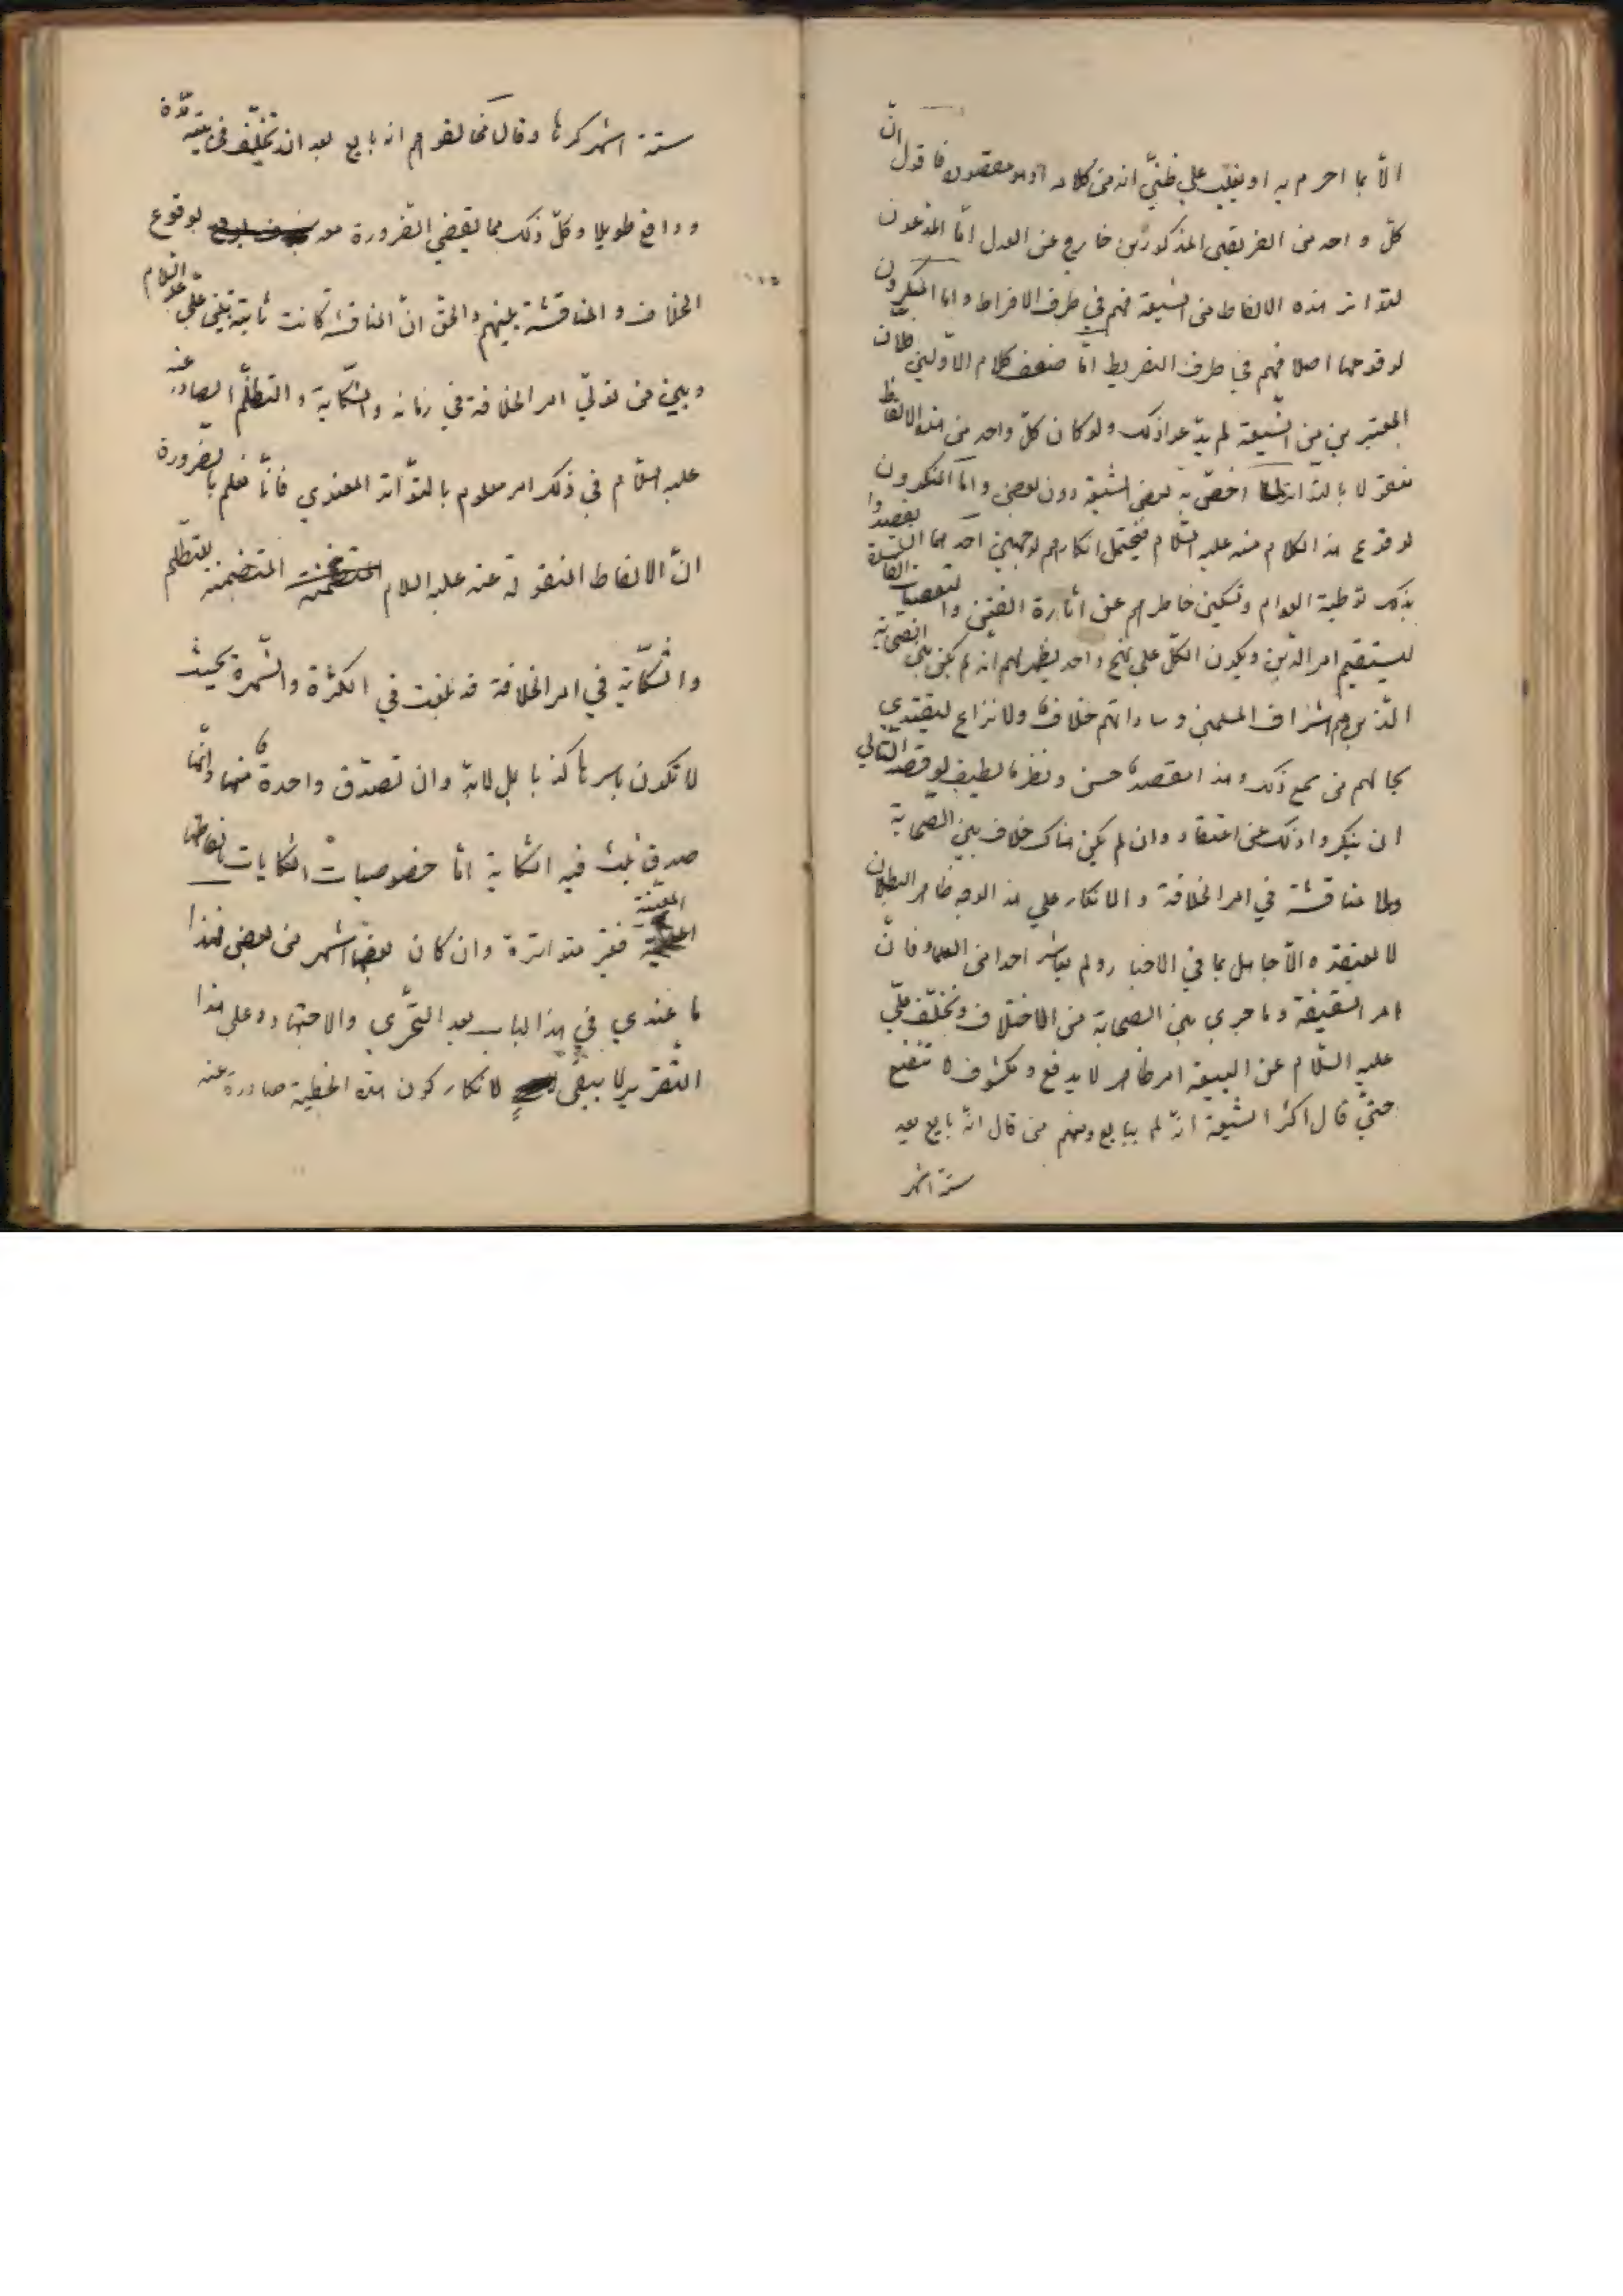 الّا بما اجزم به او يغلب على ظنّي أنه من كلامه او هو مقصوده فاقول انّ
كلّ واحد من الفريقين المذكورين خارج عن العدل امّا المدّعون
لتواتر هذه الالفاظ من الشيعة فهم في طرف الافراط واما المنكرون
لوقوعها اصلا فهم في طرف التفريط امّا ضعف كلام الاوّلين فلان
المعتبرين من الشّيعة لم يدّعوا ذلك ولو كان كلّ واحد من هذه الالفاظ
منقولا بالتواتر لما اختصّ به بعض الشيعة دون بعض وامّا المنكرون
لوقوع هذا الكلام منه عليه السّلام فيحتمل انكارهم لوجهين احدهما ان يقصدوا
بذلك توطية العوام وتسكين خاطرهم عن اثارة الفتن والتعصبات الفاسدة
ليستقيم امر الدّين ويكون الكلّ على نهج واحد فيظهر لهم انه لم يكن بين الصحابة
الّذين هم اشراف المسلمين وساداتهم خلاف ولا نزاع ليقتدي
بحالهم من سمع ذلك وهذا مقصد حسن ونظر لطيف لو قصد الثّاني
ان ينكروا ذلك عن اعتقاد وان لم يكن هناك خلاف بين الصّحابة
ولا مناقشة في امر الخلافة والانكار على هذا الوجه ظاهر البطلان
لا يعتقده الّا جاهل بما في الاخبار ولم يعاشر احدا من العلماء فانّ
امر السقيفة وما جرى بين الصحابة من الاختلاف وتخلّف عليّ
عليه السّلام عن البيعة امر ظاهر لا يدفع ومكشوف لا تقنع
حتّى قال اكثر الشّيعة انّه لم يبايع ومنهم من قال انّه بايع بعد
ستة اشهر
ستة اشهر كرها وقال مخالفوهم انه بايع بعد ان تخلّف في بيته مدّة
ودافع طويلا وكلّ ذلك مما يقضي الضّرورة معه بوقوع
الخلاف والمناقشة بينهم والحق انّ المناقشة كانت ثابتة بين علي عليه السّلام
وبين من تولّي امر الخلافة في زمانه والشّكاية والتظلّم الصادر عنه
عليه السّلام في ذلك امر معلوم بالتّواتر المعنوي فانّا نعلم بالضّرورة
انّ الالفاظ المنقولة عنه عليه السلام المتضمنة للتظلّم
والشّكاية في امر الخلافة قد بلغت في الكثرة والشّهرة بحيث
لا تكون باسرها كذبا بل لابدّ وان تصدّق واحدة منها وايّما
صدق ثبت فيه الشكاية امّا خصوصيات الشكايات بالفاظها
المعيّنة فغير متواترة وان كان بعضها اشهر من بعض فهذا
ما عندي في هذا الباب بعد التحّري والاجتهاد وعلى هذا
التّقرير لا يبقى لانكار كون هذه الخطبة صادرة عنه